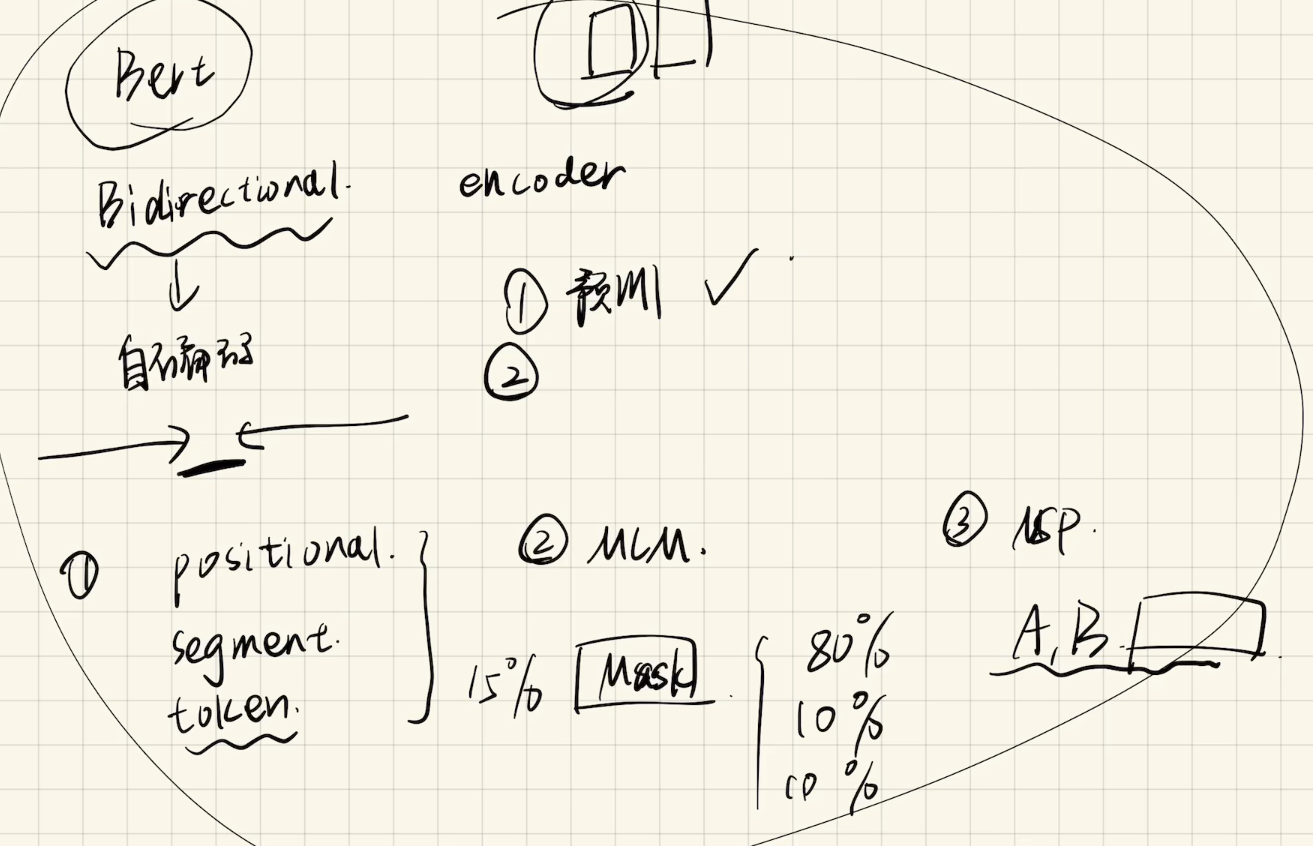 Bert
Bidirectional.
encoder
① 预训 ✓
自编码
②
① positional.
segment.
token.
② MLM.
15% Mask
80%
10%
10%
③ NSP.
A, B